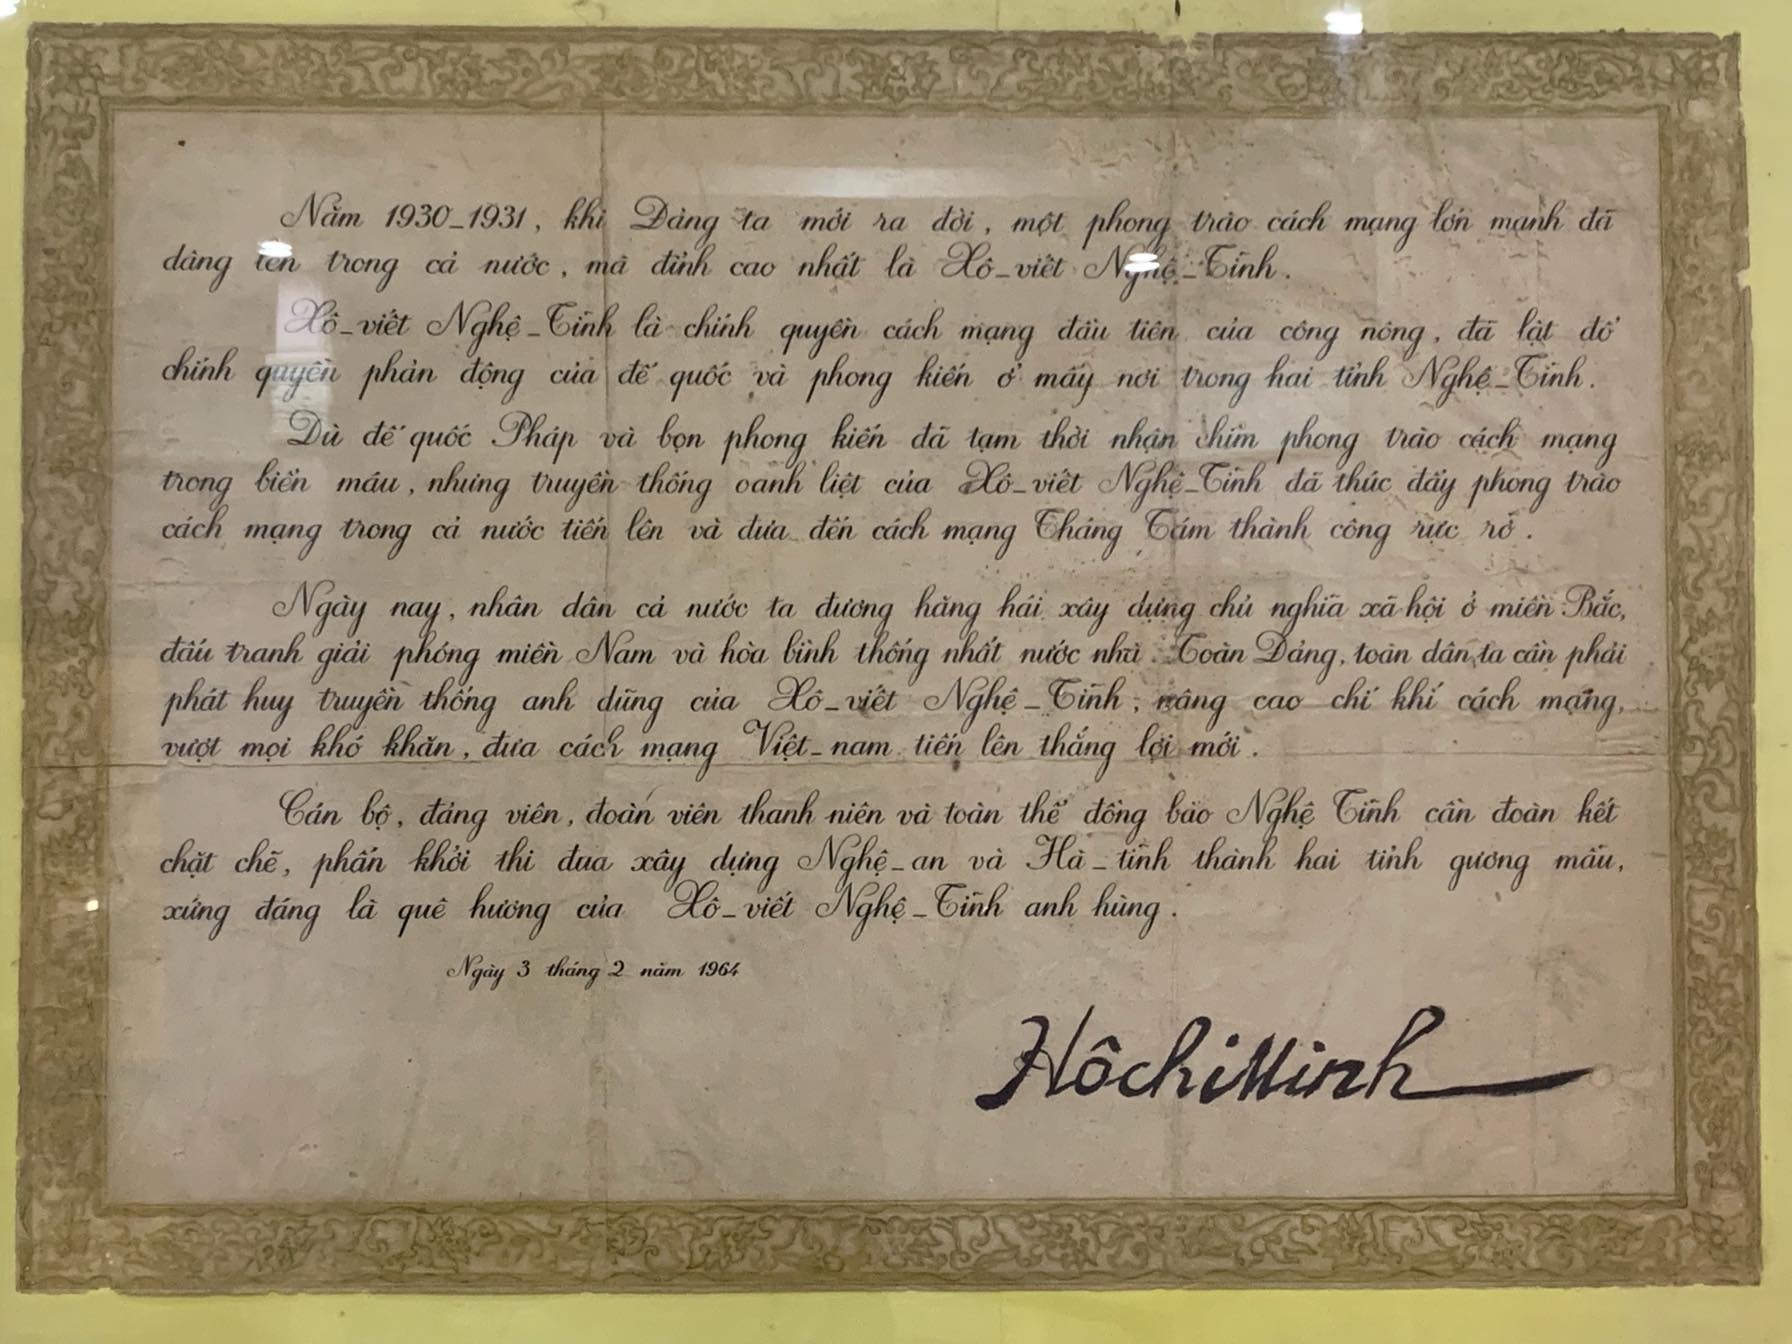 Năm 1930_1931, khi Đảng ta mới ra đời, một phong trào cách mạng lớn mạnh đã
dâng lên trong cả nước, mà đỉnh cao nhất là Xô_viết Nghệ_Tĩnh.
Xô_viết Nghệ_Tĩnh là chính quyền cách mạng đầu tiên của công nông, đã lật đổ
chính quyền phản động của đế quốc và phong kiến ở mấy nơi trong hai tỉnh Nghệ_Tĩnh.
Dù đế quốc Pháp và bọn phong kiến đã tạm thời nhận chìm phong trào cách mạng
trong biển máu, nhưng truyền thống oanh liệt của Xô_viết Nghệ_Tĩnh đã thúc đẩy phong trào
cách mạng trong cả nước tiến lên và đưa đến cách mạng Tháng Tám thành công rực rỡ.
Ngày nay, nhân dân cả nước ta đương hăng hái xây dựng chủ nghĩa xã hội ở miền Bắc,
đấu tranh giải phóng miền Nam và hòa bình thống nhất nước nhà. Toàn Đảng, toàn dân ta cần phải
phát huy truyền thống anh dũng của Xô_viết Nghệ_Tĩnh, nâng cao chí khí cách mạng,
vượt mọi khó khăn, đưa cách mạng Việt_nam tiến lên thắng lợi mới.
Cán bộ, đảng viên, đoàn viên thanh niên và toàn thể đồng bào Nghệ Tĩnh cần đoàn kết
chặt chẽ, phấn khởi thi đua xây dựng Nghệ_an và Hà_tĩnh thành hai tỉnh gương mẫu,
xứng đáng là quê hương của Xô_viết Nghệ_Tĩnh anh hùng.
Ngày 3 tháng 2 năm 1964
HôchiMinh